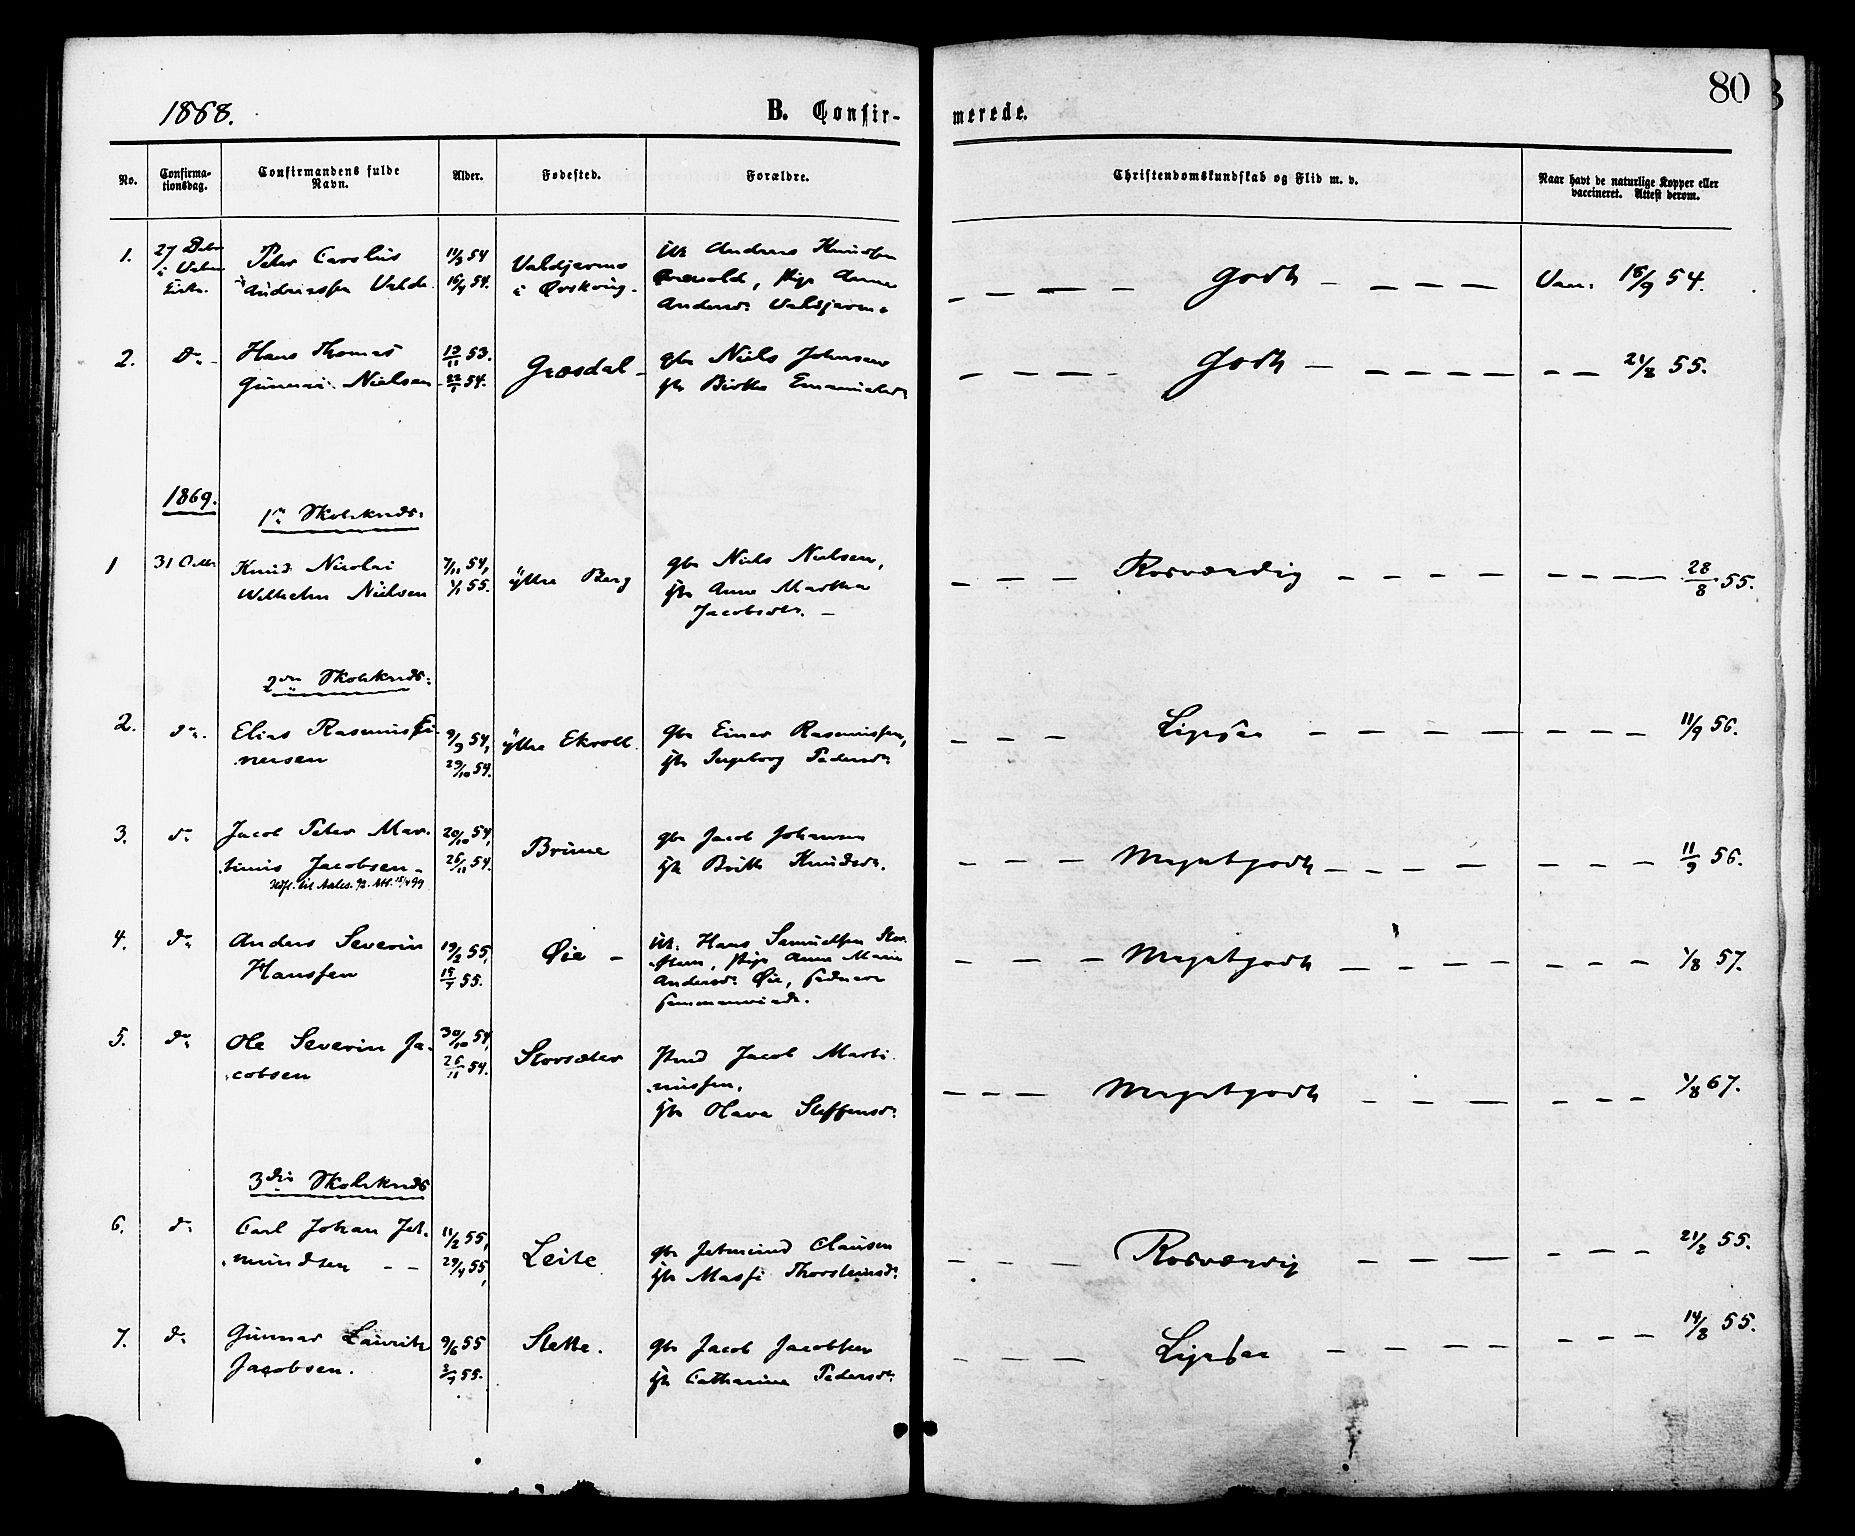 80
1868.
B. Confir-
merede.
No.
Confirma-
tionsdag.
Confirmandens fulde
Navn.
Alder.
Fødested.
Forældre.
Christendomskundskab og Flid m. v.
Naar havt de naturlige Kopper eller
vaccineret. Attest derom.
1.
27
Peter Carolius
Andreassen Valde
11/3 54
16/4 54.
Valdjerme
i Ørskoug
Andreas Knudsen
Anne
Andersd: Valdjerme
Godt
Vac: 18/9 54.
2.
Do
Hans Thomas
Gunnar Nielsen
53.
54.
Græsdal
gbr Niels Johnsen
Birthe Emanuelsd:
Godt
21/8 55.
1869.
1ste Skolekreds:
1
31 Octbr
Knud Nicolai
Wilhelm Nielsen
7/11 54,
1/1 55.
Yttre Berg
gbr Niels Nielsen,
Anne Marthea
Jacobsdtr.
Roesværdig
28/8 55.
2den Skolekreds:
2.
do.
Elias Rasmus Ei-
nersen
9/9 54,
29/10 54.
Yttre Ekroll
gbr Einer Rasmussen,
Ingeborg Pedersdr
Ligesaa
11/9 56.
3.
do
Jacob Peter Mar-
tinus Jacobsen
20/10 54,
26/11 54.
Brune
gbr Jacob Johansen
Brith Knudsdr.
Megetgodt
11/9 56.
4.
do
Anders Severin
Hanssen
19/2 55,
55.
Øie
Hans Samuelsen Stor-
Anne Marie
Andersdr Øie,
Megetgodt
1/8 57.
5.
do
Ole Severin Ja-
cobsen
30/10 54,
26/11 54.
Storsæter
Jacob Marti-
nussen,
Olava Steffensdr
Megetgodt
1/8 67.
3die Skolekreds
6.
do
Carl Johan Jet-
mundsen
11/2 55,
29/4 55,
Leite
gbr Jetmund Clausen
Massi Thorsteinsdr
Roesværdig
21/2 55.
7.
do
Gunnar Lauritz
Jacobsen.
9/6 55
55.
Slette.
gbr Jacob Jacobsen
Catharina Pedersdr
Ligesaa
14/8 55.